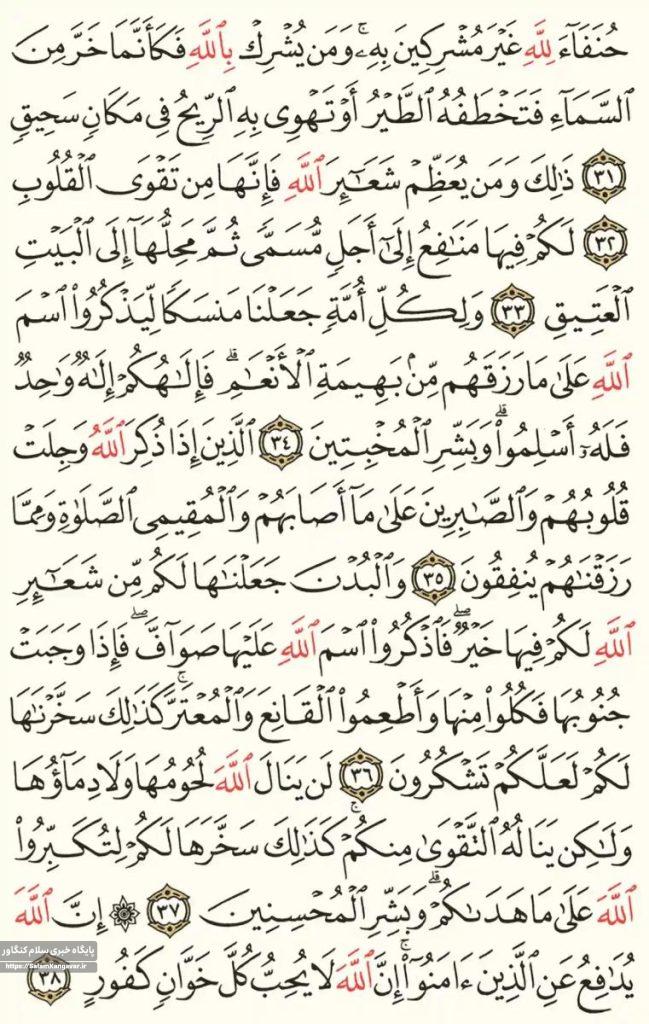 حُنَفَآءَ لِلَّهِ غَيْرَ مُشْرِكِينَ بِهِۦۚ وَمَن يُشْرِكْ بِٱللَّهِ فَكَأَنَّمَا خَرَّ مِنَ
ٱلسَّمَآءِ فَتَخْطَفُهُ ٱلطَّيْرُ أَوْ تَهْوِى بِهِ ٱلرِّيحُ فِى مَكَانٍ سَحِيقٍ
٣١ ذَٰلِكَ وَمَن يُعَظِّمْ شَعَـٰٓئِرَ ٱللَّهِ فَإِنَّهَا مِن تَقْوَى ٱلْقُلُوبِ
٣٢ لَكُمْ فِيهَا مَنَـٰفِعُ إِلَىٰٓ أَجَلٍ مُّسَمًّى ثُمَّ مَحِلُّهَآ إِلَى ٱلْبَيْتِ
ٱلْعَتِيقِ ٣٣ وَلِكُلِّ أُمَّةٍ جَعَلْنَا مَنسَكًا لِّيَذْكُرُوا۟ ٱسْمَ
ٱللَّهِ عَلَىٰ مَا رَزَقَهُم مِّنۢ بَهِيمَةِ ٱلْأَنْعَـٰمِۗ فَإِلَـٰهُكُمْ إِلَـٰهٌ وَٰحِدٌ
فَلَهُۥٓ أَسْلِمُوا۟ۗ وَبَشِّرِ ٱلْمُخْبِتِينَ ٣٤ ٱلَّذِينَ إِذَا ذُكِرَ ٱللَّهُ وَجِلَتْ
قُلُوبُهُمْ وَٱلصَّـٰبِرِينَ عَلَىٰ مَآ أَصَابَهُمْ وَٱلْمُقِيمِى ٱلصَّلَوٰةِ وَمِمَّا
رَزَقْنَـٰهُمْ يُنفِقُونَ ٣٥ وَٱلْبُدْنَ جَعَلْنَـٰهَا لَكُم مِّن شَعَـٰٓئِرِ
ٱللَّهِ لَكُمْ فِيهَا خَيْرٌۖ فَٱذْكُرُوا۟ ٱسْمَ ٱللَّهِ عَلَيْهَا صَوَآفَّۖ فَإِذَا وَجَبَتْ
جُنُوبُهَا فَكُلُوا۟ مِنْهَا وَأَطْعِمُوا۟ ٱلْقَانِعَ وَٱلْمُعْتَرَّۚ كَذَٰلِكَ سَخَّرْنَـٰهَا
لَكُمْ لَعَلَّكُمْ تَشْكُرُونَ ٣٦ لَن يَنَالَ ٱللَّهَ لُحُومُهَا وَلَا دِمَآؤُهَا
وَلَـٰكِن يَنَالُهُ ٱلتَّقْوَىٰ مِنكُمْۚ كَذَٰلِكَ سَخَّرَهَا لَكُمْ لِتُكَبِّرُوا۟
ٱللَّهَ عَلَىٰ مَا هَدَىٰكُمْۗ وَبَشِّرِ ٱلْمُحْسِنِينَ ٣٧ ۞ إِنَّ ٱللَّهَ
يُدَٰفِعُ عَنِ ٱلَّذِينَ ءَامَنُوٓا۟ۗ إِنَّ ٱللَّهَ لَا يُحِبُّ كُلَّ خَوَّانٍ كَفُورٍ ٣٨
پایگاه خبری سلام کنگاور
https://SalamKangavar.ir